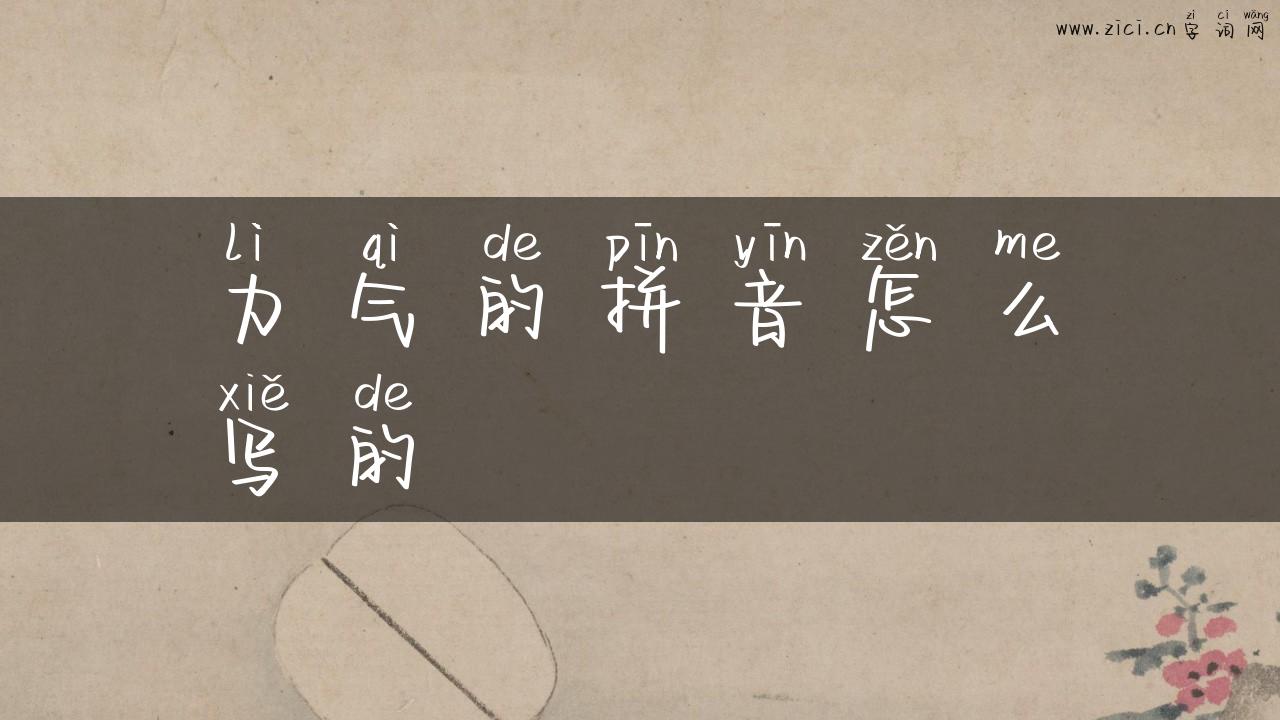 zì cí wǎng
www.zici.cn 字词网
lì qì de pīn yīn zěn me
力气的拼音怎么
xiě de
写的